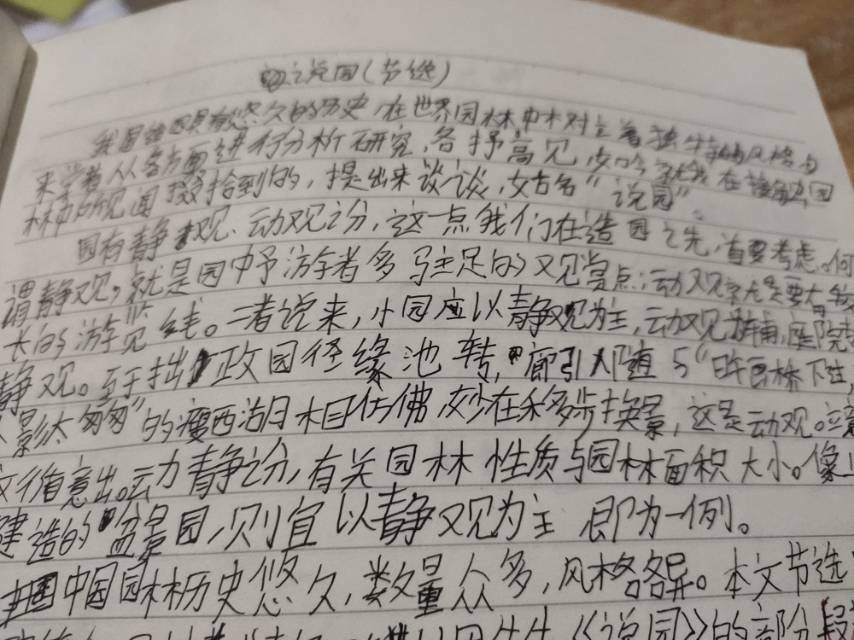 说园(节选)
我国 具有悠久的历史,在世界园林中 对 着独特的风格
来学者从各方面进行分析研究,各抒高见, 在接触园
林中的见闻掇拾到的,提出来谈谈,姑名“说园”。
园有静观、动观之分,这一点我们在造园之先,首要考虑。何
谓静观,就是园中予游者多驻足的观赏点;动观 是要有较
长的游览线。二者说来,小园应以静观为主,动观为辅,庭院
静观。至于拙政园径缘池转,廊引人随 与“ 画林下住,
人影太匆匆”的瘦西湖相仿佛,妙在移步换景,这是动观。立意
文循意出。动静之分,有关园林性质与园林面积大小。像上
建造的盆景园,则宜以静观为主 即为一例。
中国园林历史悠久,数量众多,风格各异。本文节选
《说园》的部分段